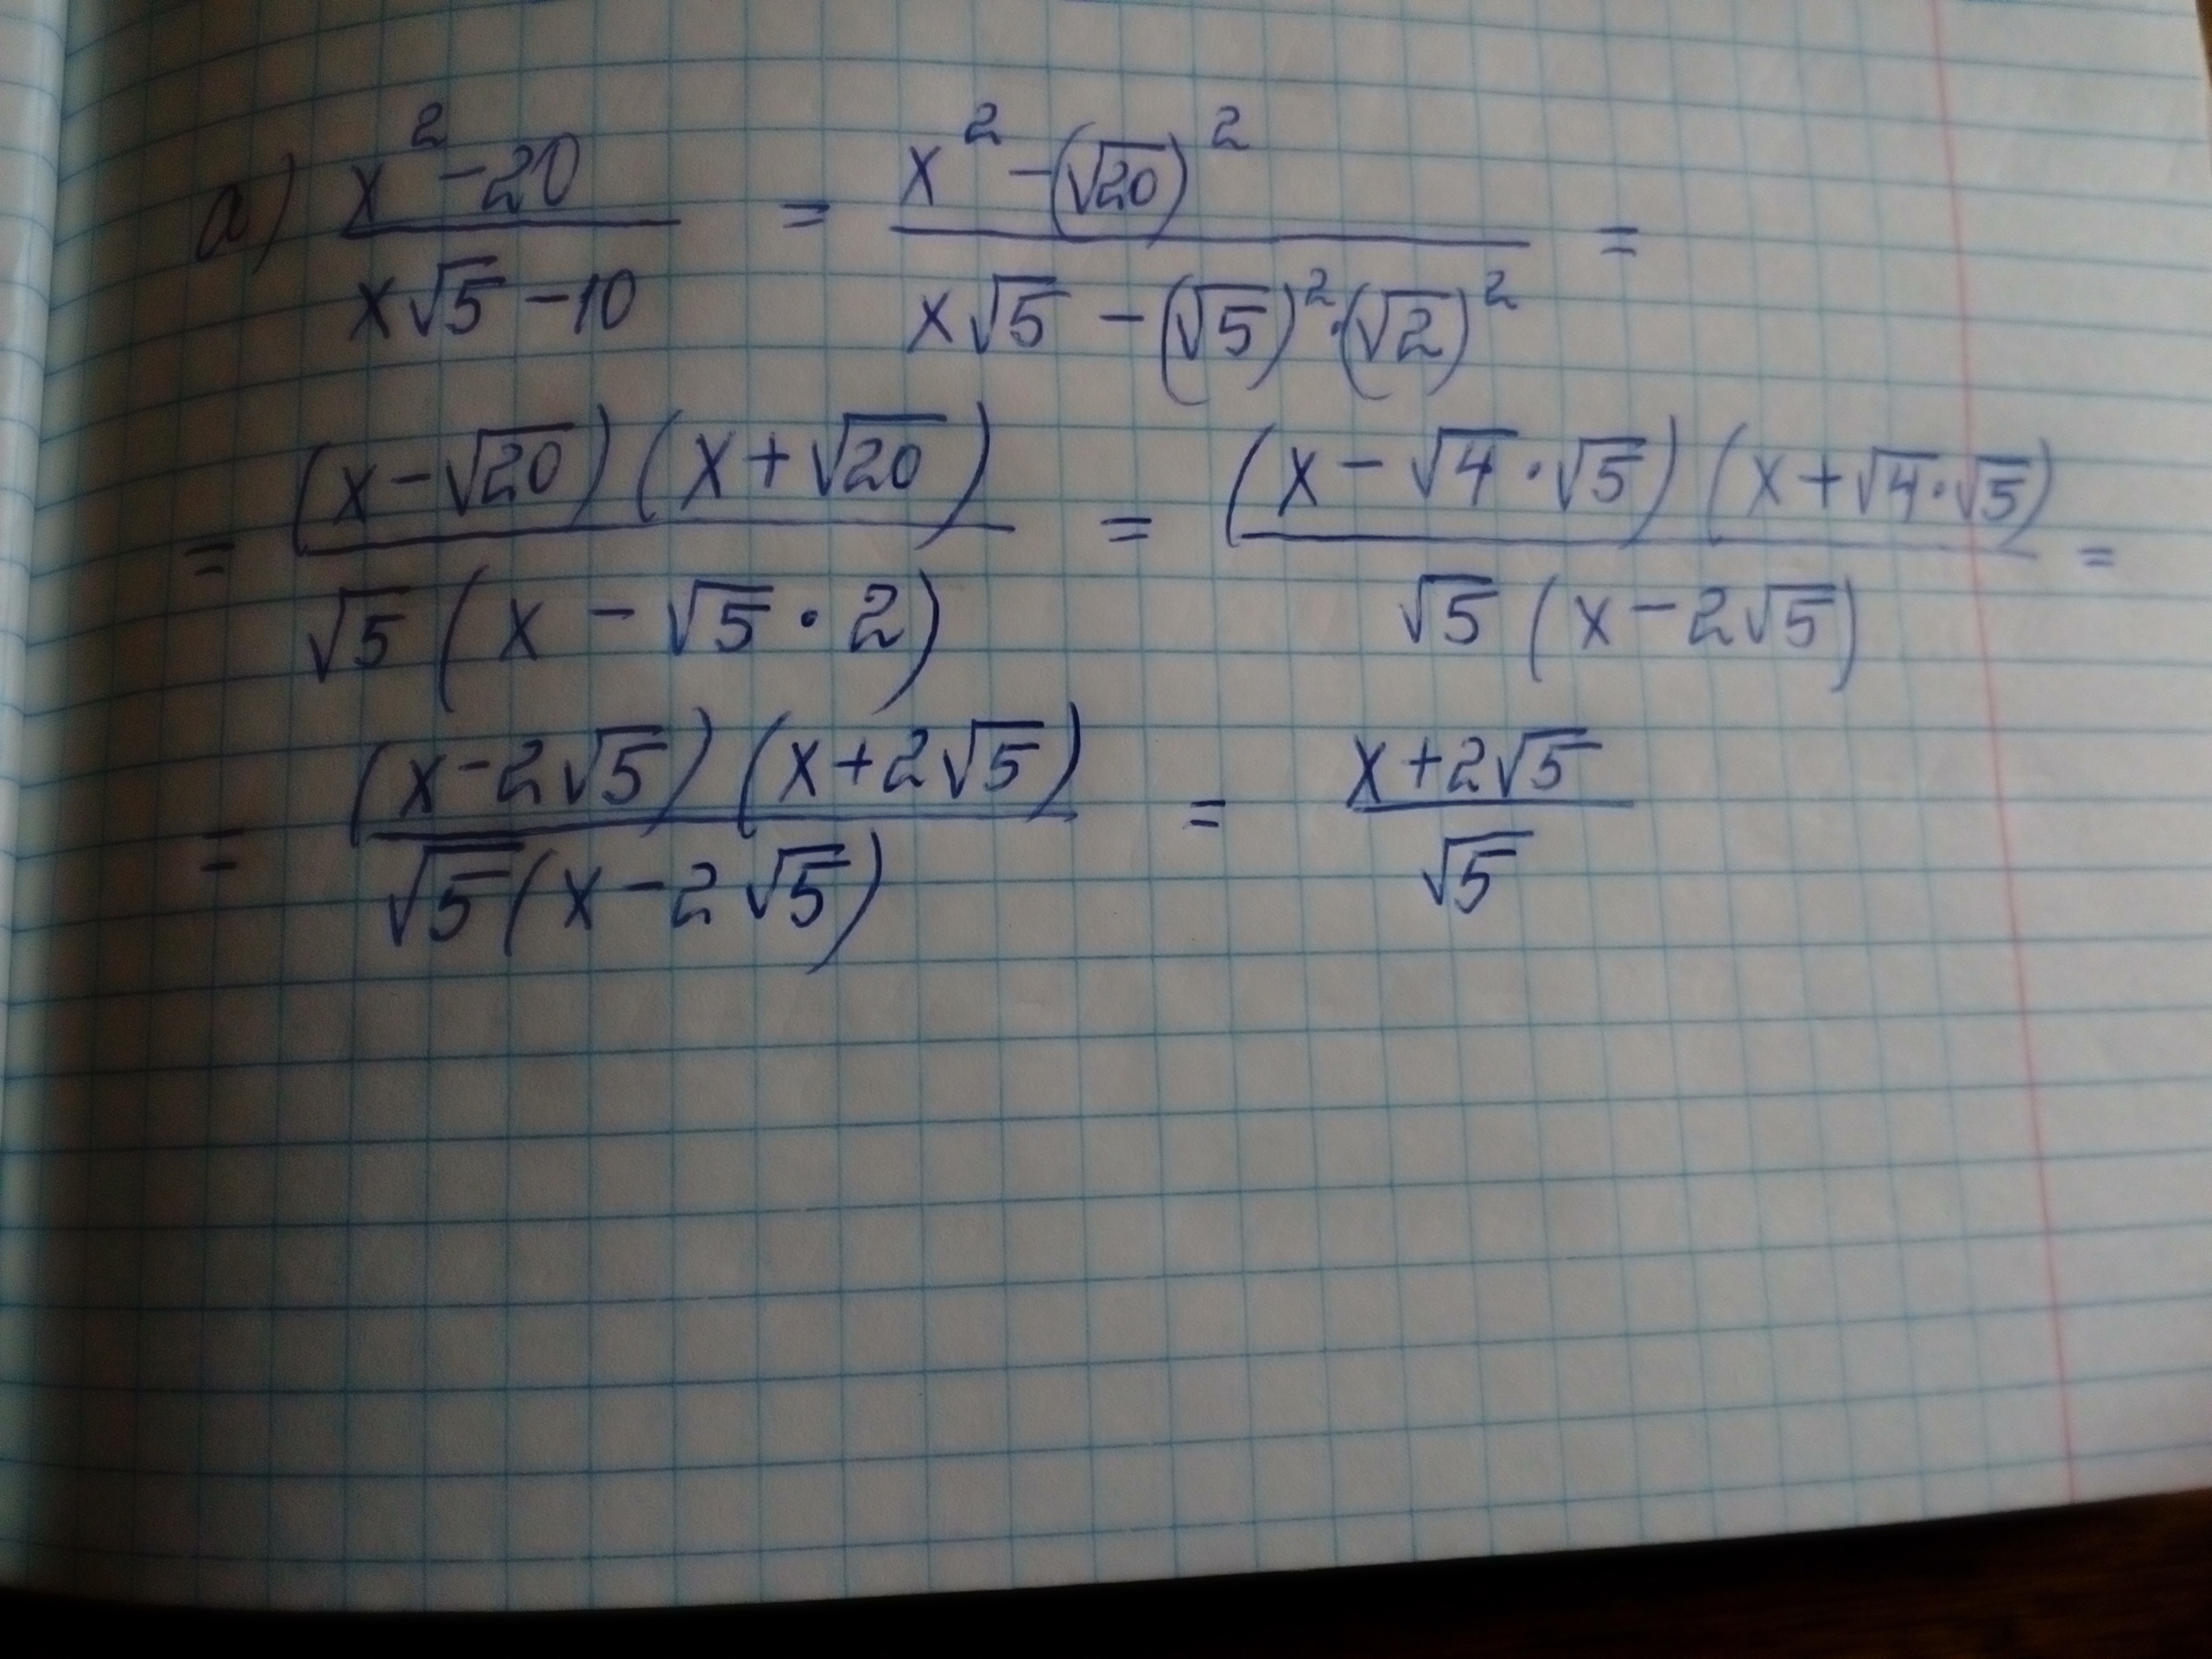 a) (x² - 20)/(x√5 - 10) = (x² - (√20)²)/(x√5 - (√5)²·(√2)²) =
= ((x - √20)(x + √20))/(√5(x - √5 · 2)) = ((x - √4 · √5)(x + √4 · √5))/(√5(x - 2√5)) =
= ((x - 2√5)(x + 2√5))/(√5(x - 2√5)) = (x + 2√5)/√5